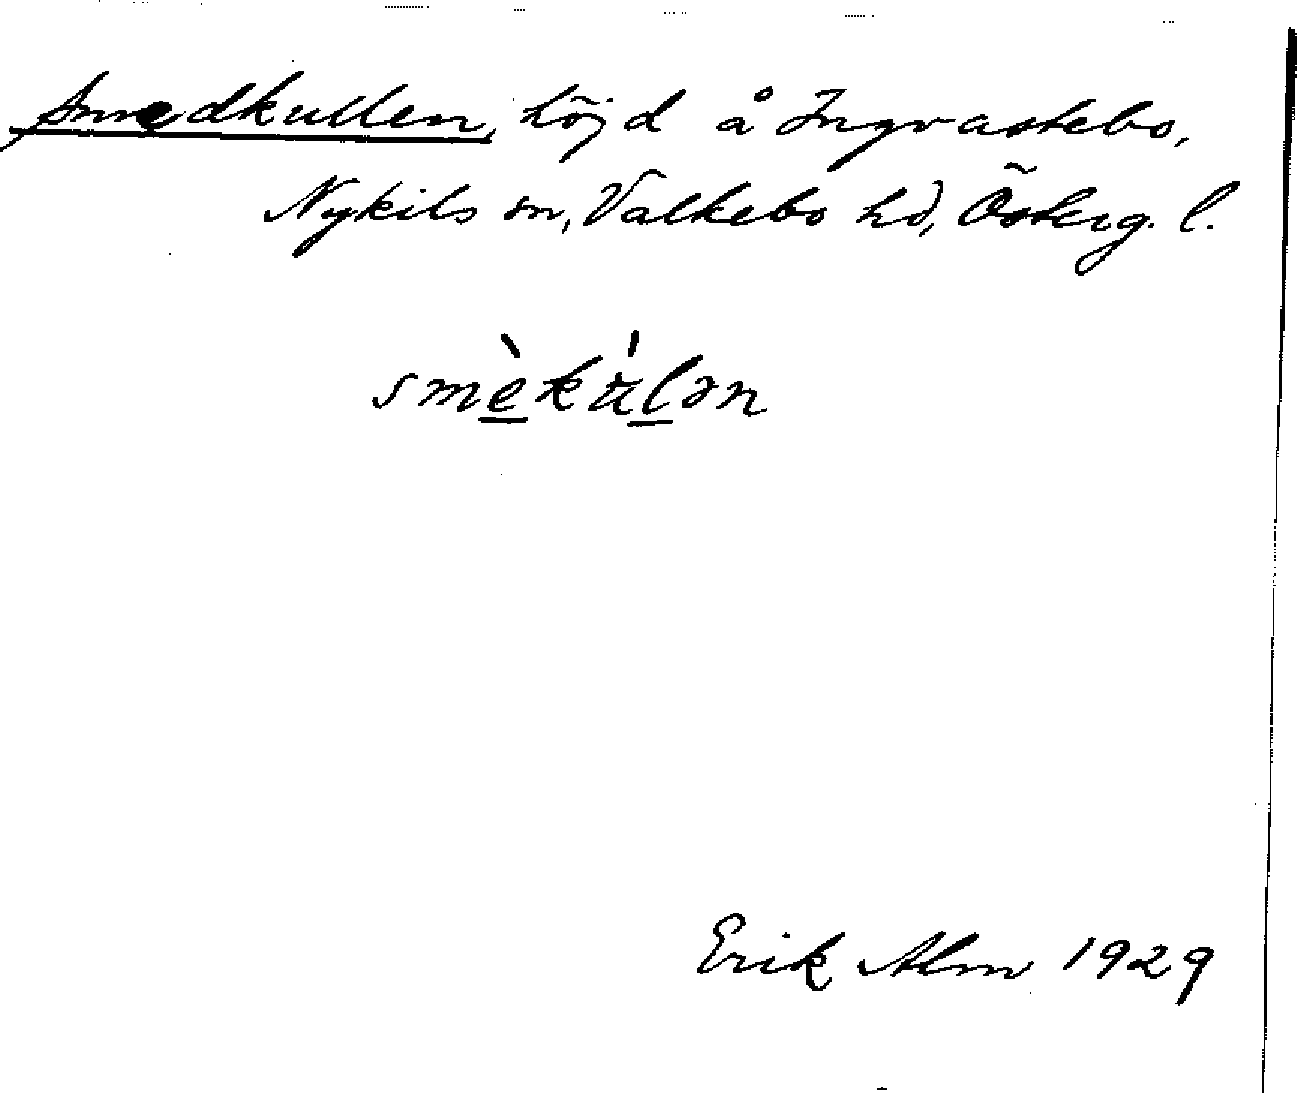 Smedkullen, höjd å Ingvastebo,
Nykils sn, Valkebo hd, Österg. l.
smè̲kul̲ən
Erik Alm 1929